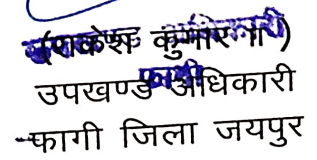 (राकेश कुमार II)
उपखण्ड अधिकारी
फागी जिला जयपुर